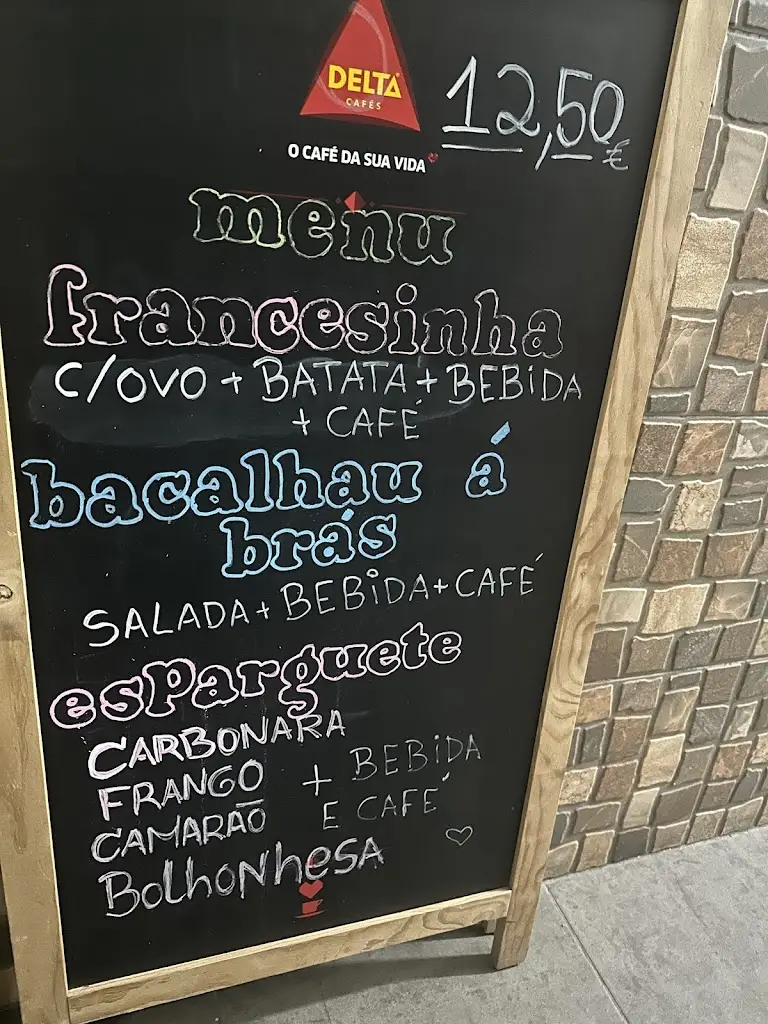 DELTA
CAFÉS
12,50€
O CAFÉ DA SUA VIDA
menu
francesinha
C/OVO + BATATA + BEBIDA
+ CAFÉ
bacalhau á
brás
SALADA + BEBIDA + CAFÉ
esparguete
CARBONARA
FRANGO + BEBIDA
CAMARÃO E CAFÉ
BolhoNhesA